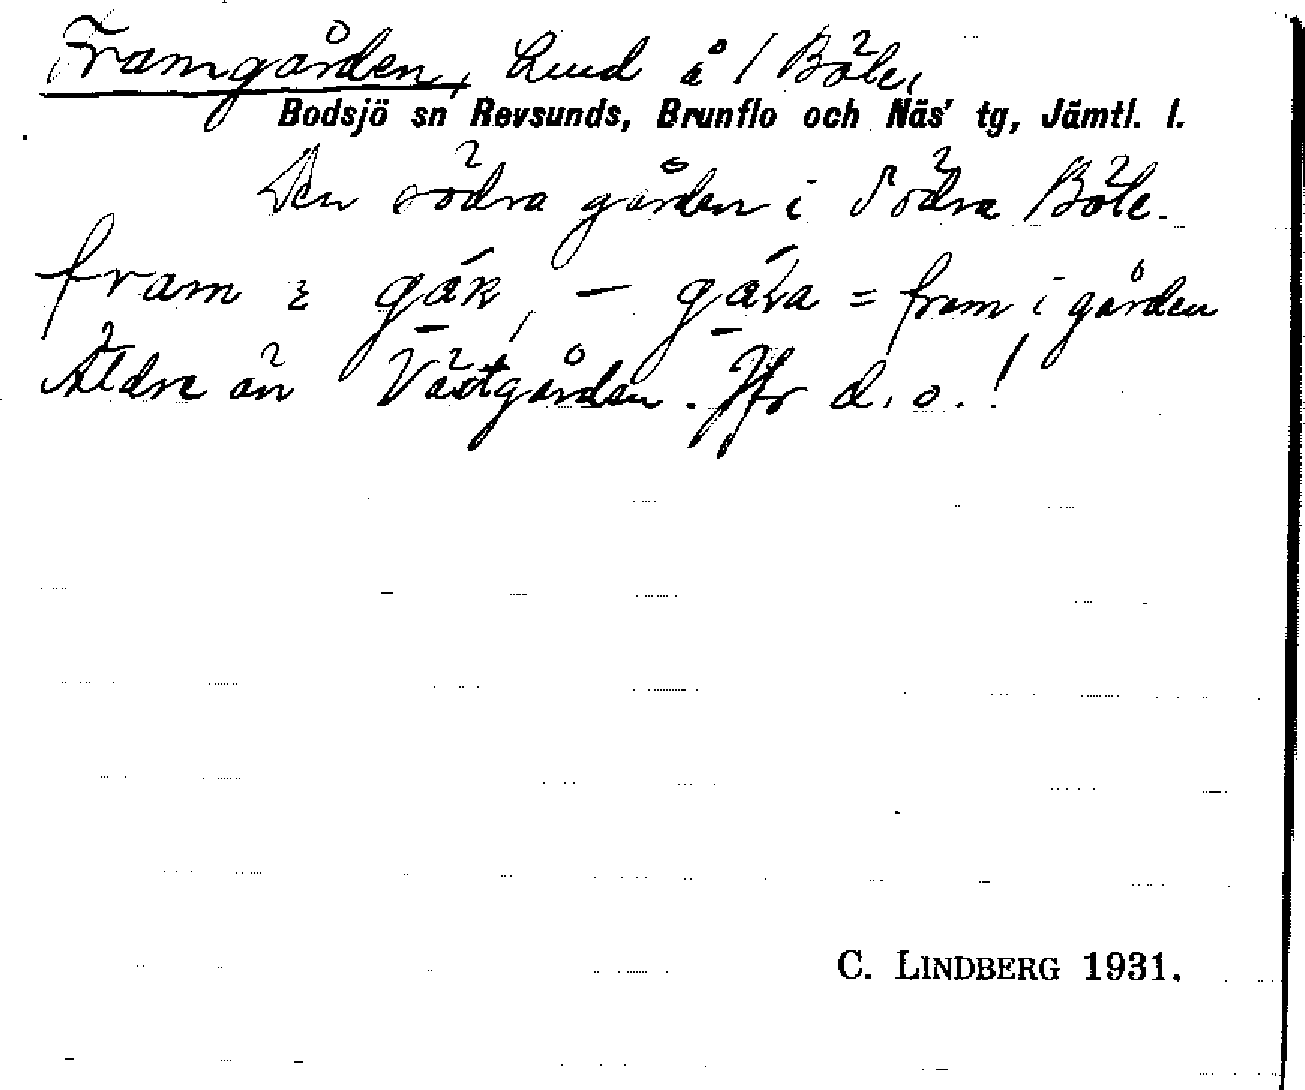 Framgården, Lund å 1 Böle,
Bodsjö sn Revsunds, Brunflo och Näs' tg, Jämtl. l.
Den södra gården i Södra Böle.
fram = fram i gården
Äldre än Västgården. Jfr d. o.!
C. LINDBERG 1931.